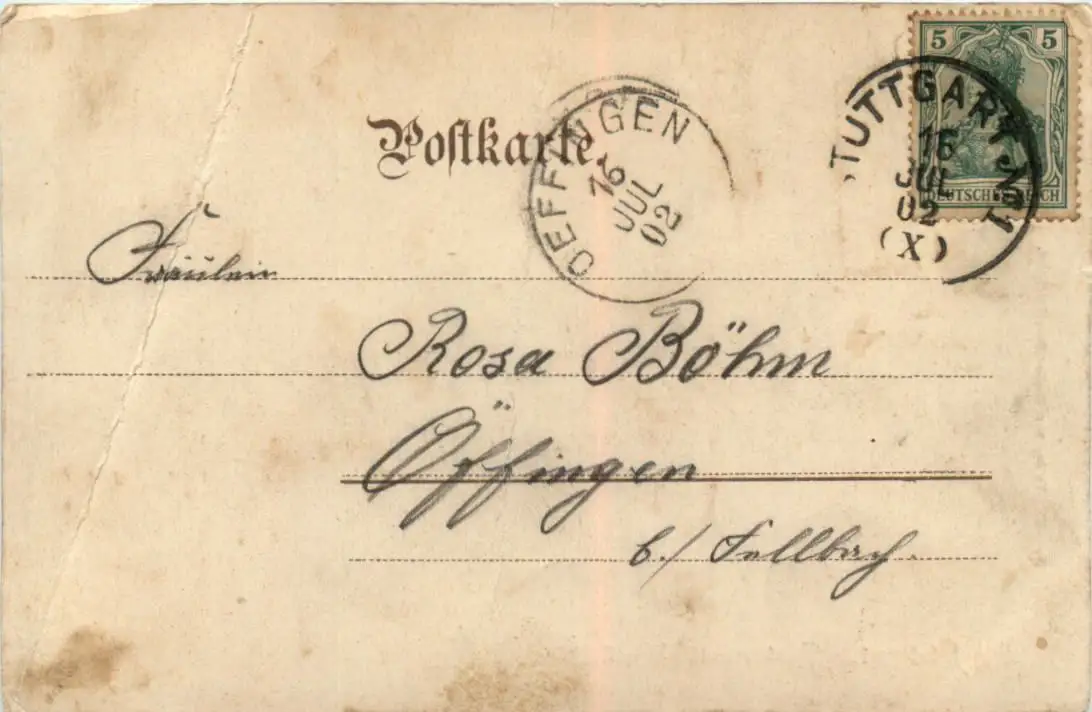 5 5
DEUTSCHES REICH
STUTTGART No 1
16
JUL
02
(X)
Postkarte.
OEFFINGEN
16
JUL
02
Fräulein
Rosa Böhm
Öffingen
b./ Fellbach.